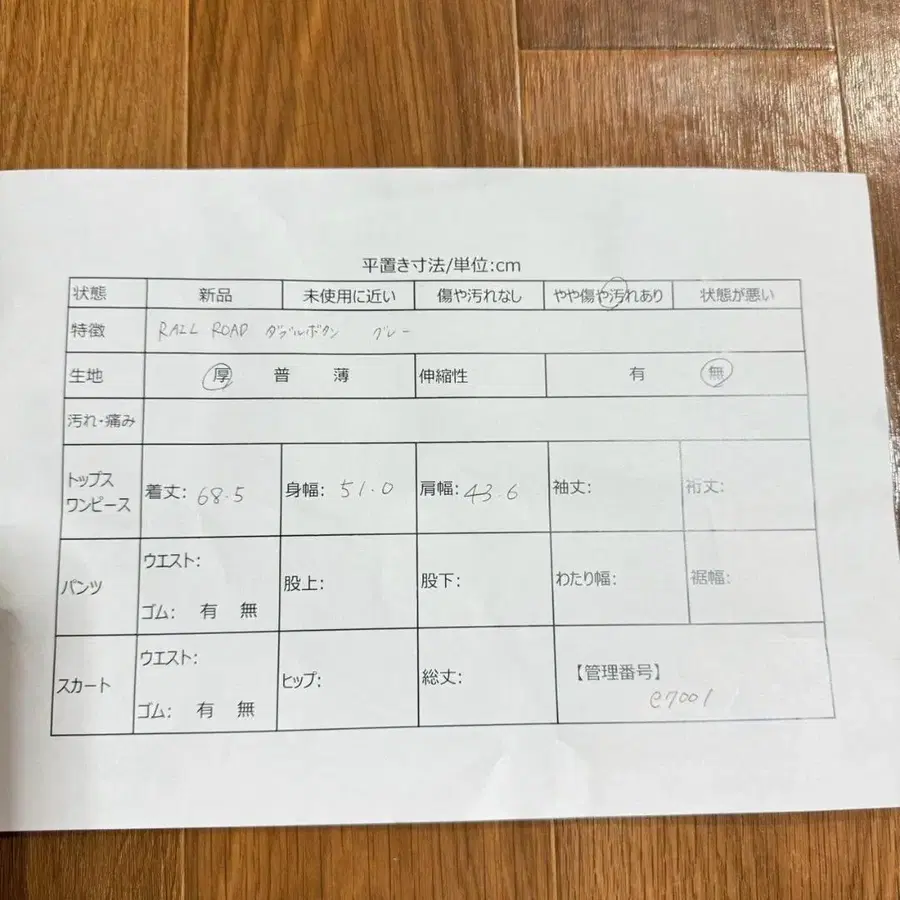 平置き寸法/単位:cm
状態 新品 未使用に近い 傷や汚れなし やや傷や汚れあり 状態が悪い
特徴 RAIL ROAD ダブルボタン グレー
生地 厚 普 薄 伸縮性 有 無
汚れ・痛み
トップス
ワンピース 着丈: 68.5 身幅: 51.0 肩幅: 43.6 袖丈: 裄丈:
パンツ ウエスト: 股上: 股下: わたり幅: 裾幅:
ゴム: 有 無
スカート ウエスト: ヒップ: 総丈: 【管理番号】
ゴム: 有 無 e7001